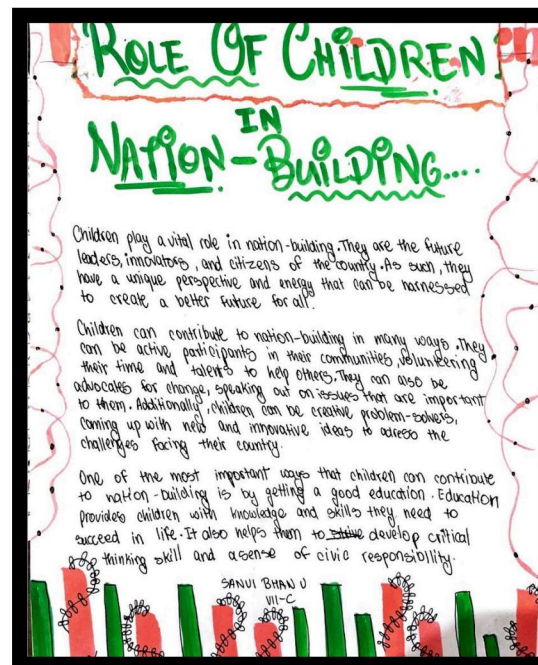 ROLE OF CHILDREN
IN
NATION-BUILDING....
Children play a vital role in nation-building. They are the future
leaders, innovators, and citizens of the country. As such, they
have a unique perspective and energy that can be harnessed
to create a better future for all.
Children can contribute to nation-building in many ways. They
can be active participants in their communities, volunteering
their time and talents to help others. They can also be
advocates for change, speaking out on issues that are important
to them. Additionally, children can be creative problem-solvers,
coming up with new and innovative ideas to adress the
challenges facing their country.
One of the most important ways that children can contribute
to nation-building is by getting a good education. Education
provides children with knowledge and skills they need to
succeed in life. It also helps them to develop critical
thinking skill and a sense of civic responsibility.
SANVI BHANU
VII-C